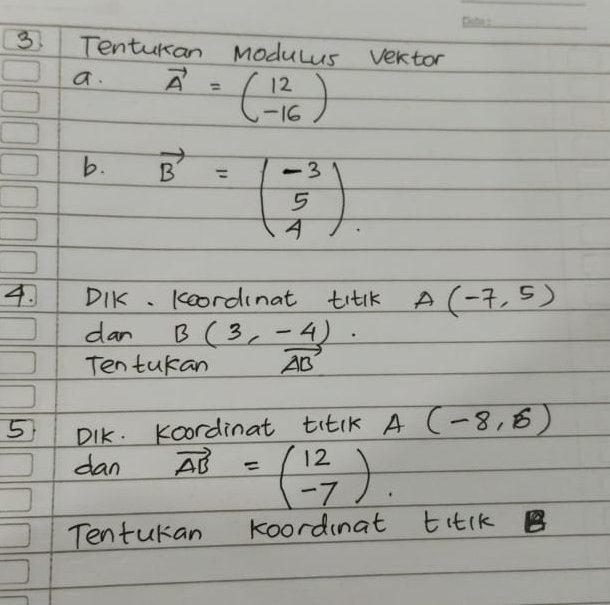 3. Tentukan Modulus Vektor
a. A⃗ = (12
-16)
b. B⃗ = (-3
5
4).
4. DIK. Koordinat titik A (-7, 5)
dan B (3, -4).
Tentukan AB⃗
5. DIK. Koordinat titik A (-8, )
dan AB⃗ = (12
-7).
Tentukan Koordinat titik B